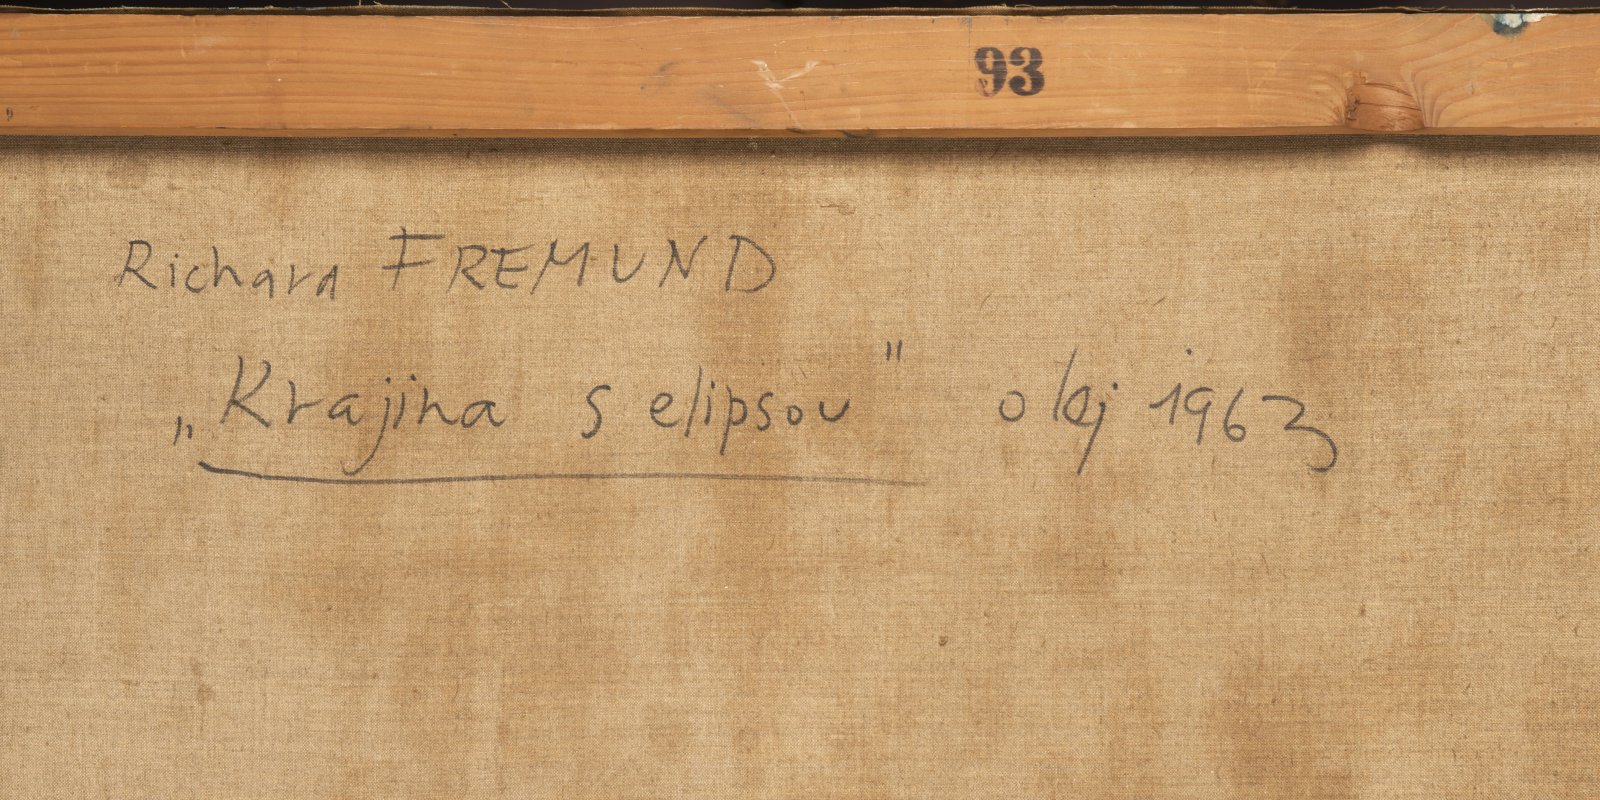 93
Richard FREMUND
„Krajina s elipsou" olej 1963